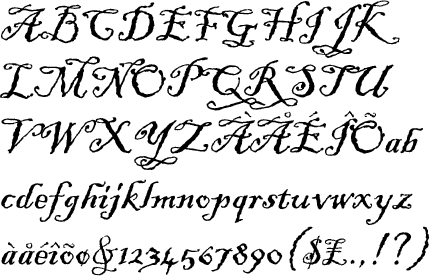 ABCDEFGHIJK
LMNOPQRSTU
VWXYZÀÅÉÎÕab
cdefghijklmnopqrstuvwxyz
àåéîõø&1234567890($£.,!?)